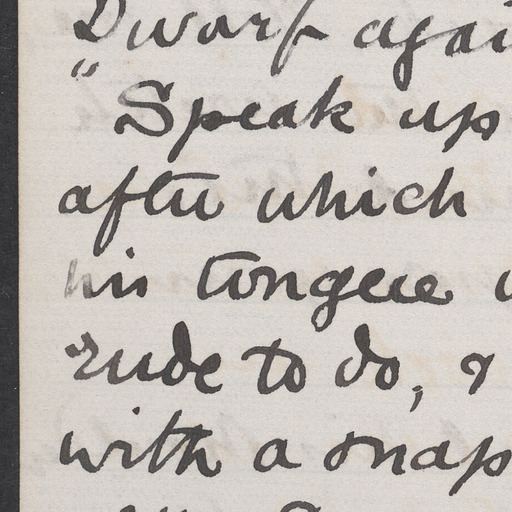 Dwarf agai
"Speak up
after which
his tongue
rude to do, &
with a snap